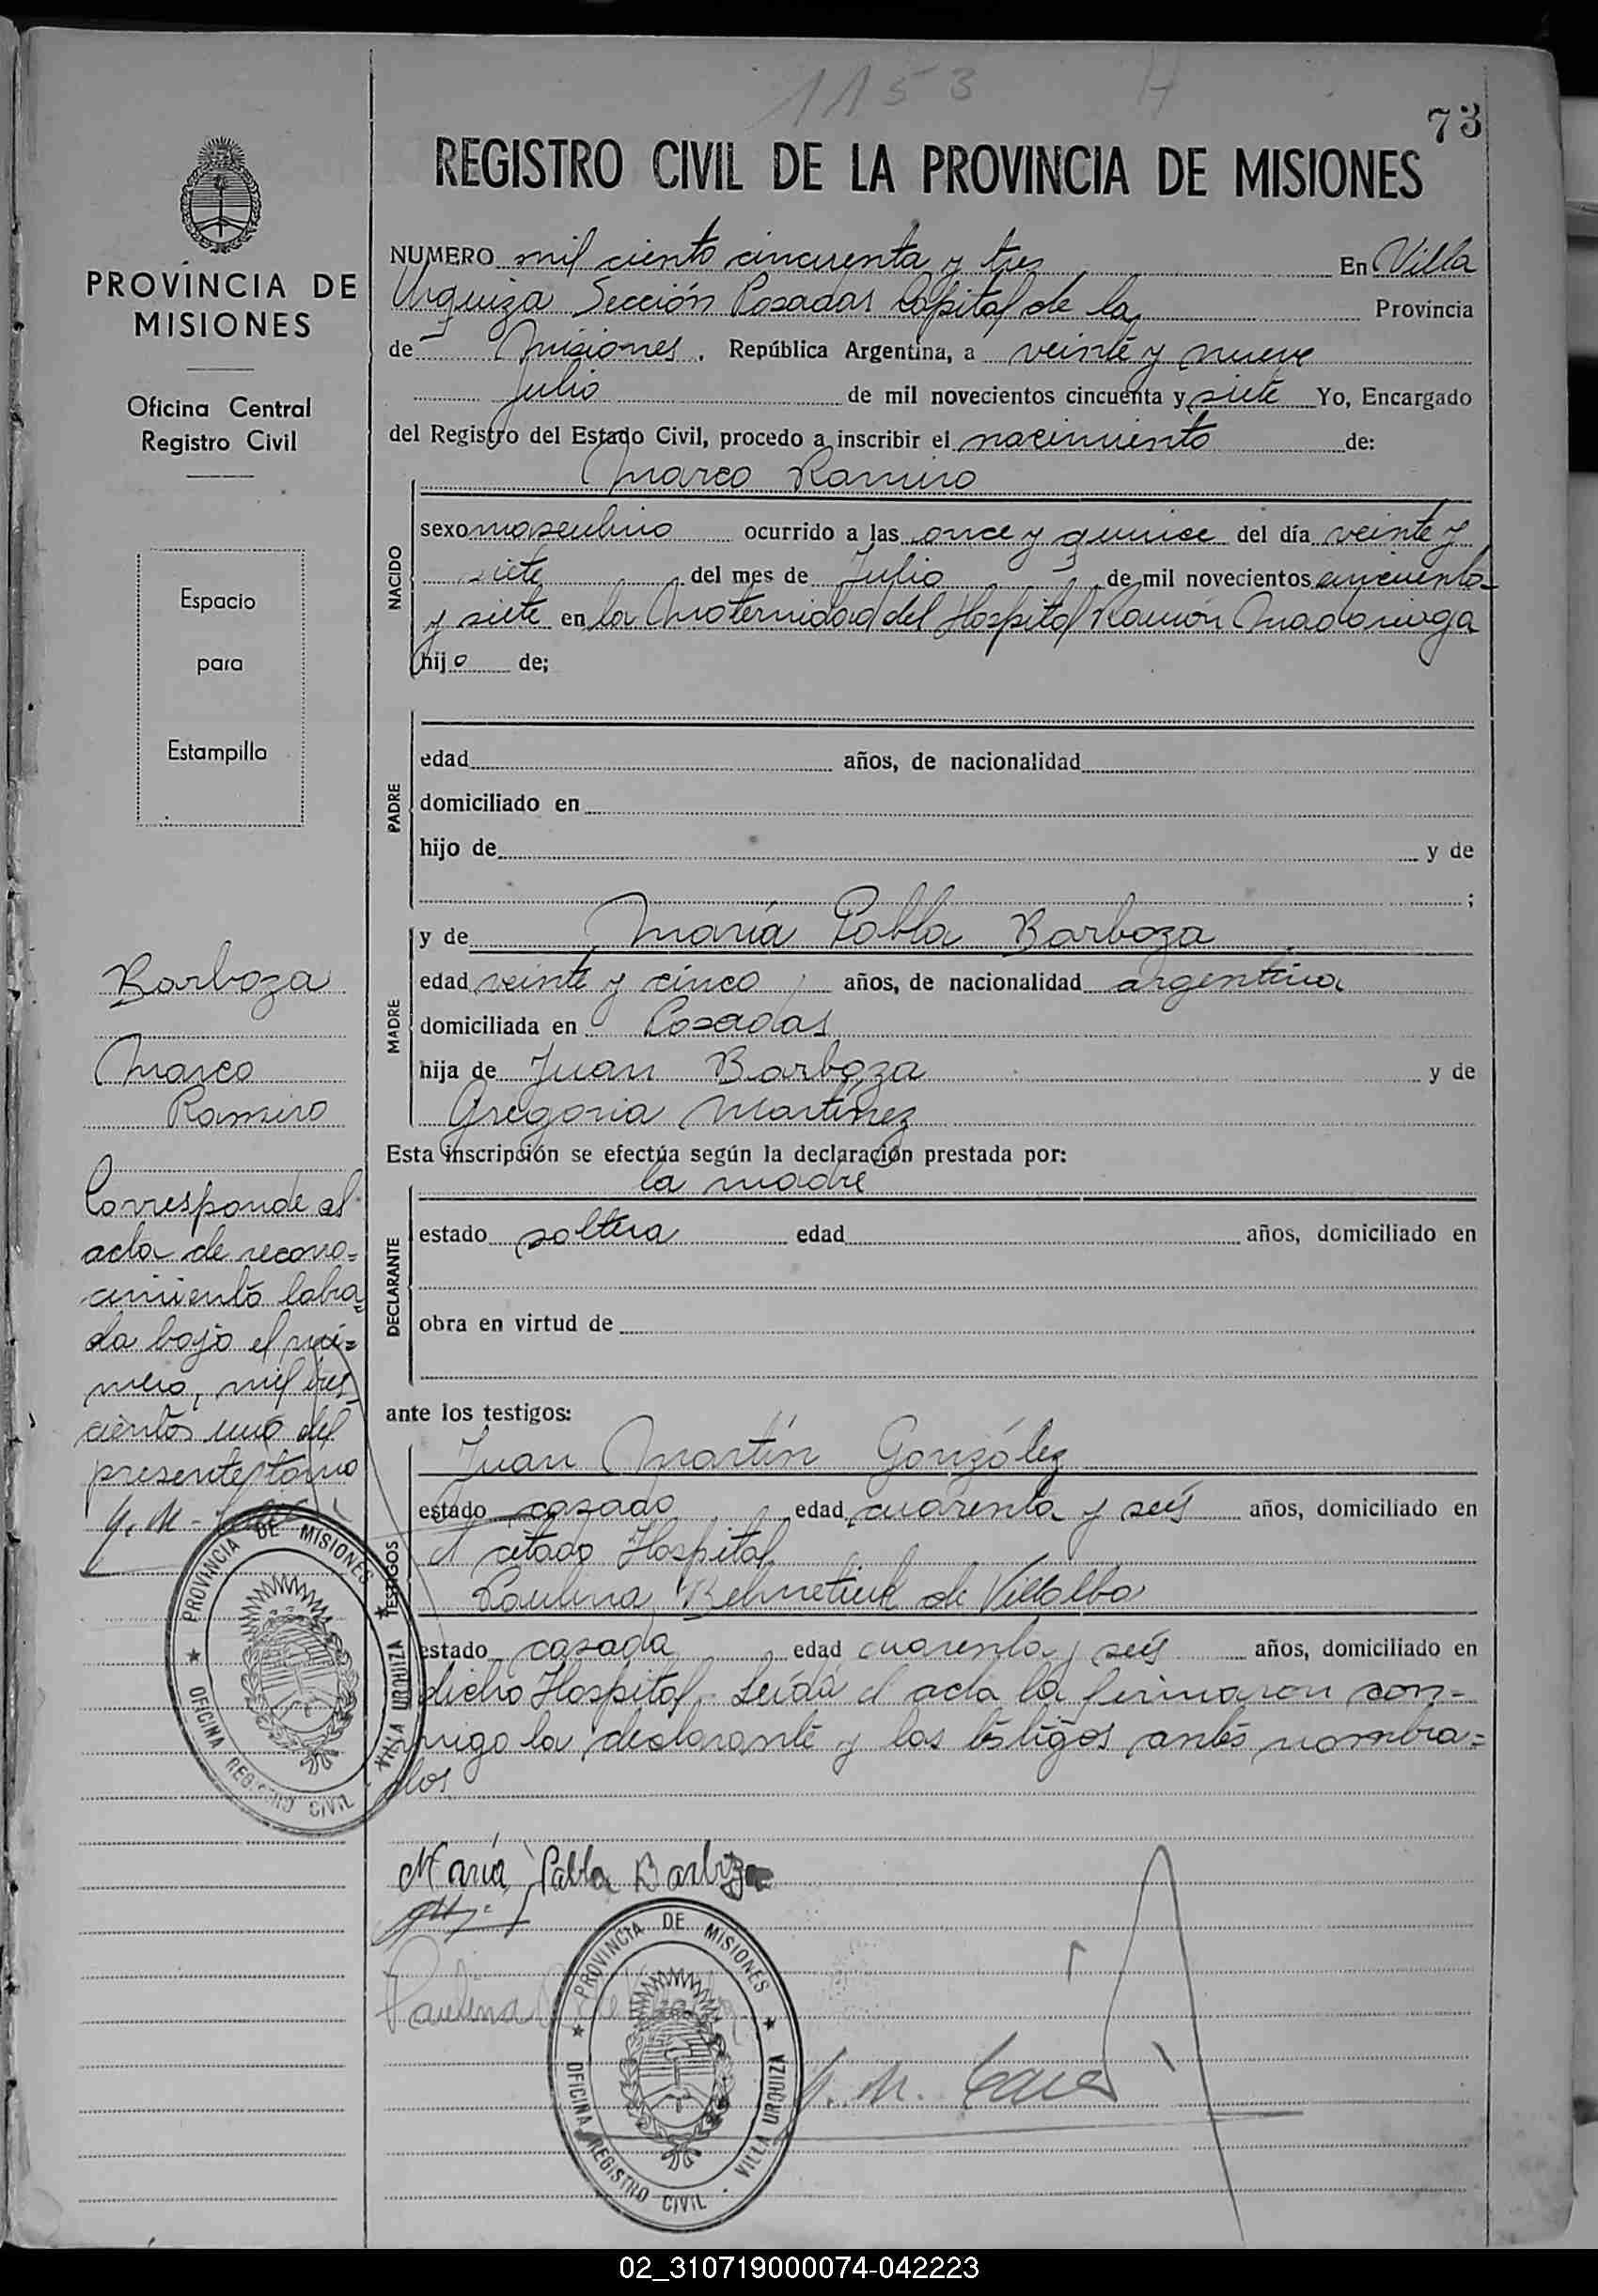 1153 H
73
REGISTRO CIVIL DE LA PROVINCIA DE MISIONES
PROVINCIA DE
MISIONES
Oficina Central
Registro Civil
Espacio
para
Estampilla
Barboza
Marco
Ramiro
Corresponde al
acta de recono=
cimiento labra=
da bajo el nú=
mero, mil tres
cientos uno del
presente tomo
NUMERO mil ciento cincuenta y tres En Villa
Urquiza Sección Posadas Capital de la Provincia
de Misiones. República Argentina, a veinte y nueve
Julio de mil novecientos cincuenta y siete Yo, Encargado
del Registro del Estado Civil, procedo a inscribir el nacimiento de:
Marco Ramiro
NACIDO
sexo masculino ocurrido a las once y quince del día veinte y
siete del mes de Julio de mil novecientos cincuenta=
y siete en la Maternidad del Hospital Ramón Madariaga
hijo de;
PADRE
edad años, de nacionalidad
domiciliado en
hijo de y de
;
MADRE
y de María Pabla Barboza
edad veinte y cinco años, de nacionalidad argentina
domiciliada en Posadas
hija de Juan Barboza y de
Gregoria Martínez
Esta inscripción se efectúa según la declaración prestada por:
la madre
DECLARANTE
estado soltera edad años, domiciliado en
obra en virtud de
ante los testigos:
TESTIGOS
Juan Martín González
estado casado edad cuarenta y seis años, domiciliado en
el citado Hospital
Paulina de Villalba
estado casada edad cuarenta y seis años, domiciliado en
dicho Hospital.- Leída el acta la firmaron con=
migo la declarante y los testigos antes nombra=
dos
PROVINCIA DE MISIONES
OFICINA REGISTRO CIVIL - VILLA URQUIZA
María Pabla Barboza
Paulina
PROVINCIA DE MISIONES
OFICINA REGISTRO CIVIL - VILLA URQUIZA
02_310719000074-042223